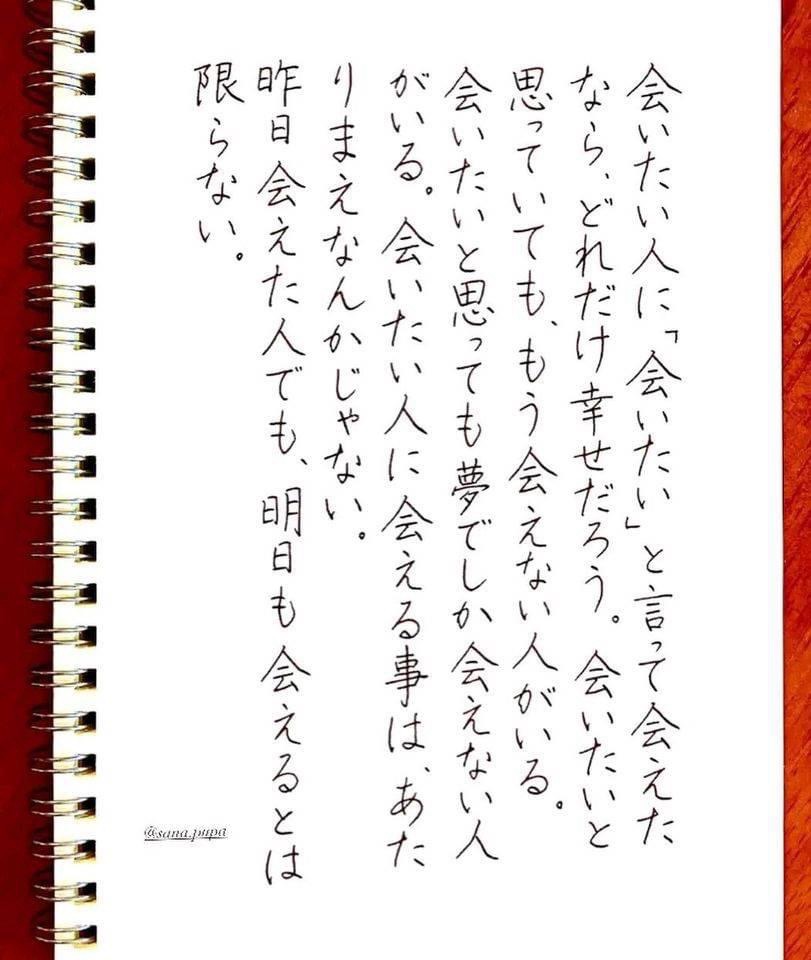 会いたい人に「会いたい」と言って会えた
なら、どれだけ幸せだろう。会いたいと
思っていても、もう会えない人がいる。
会いたいと思っても夢でしか会えない人
がいる。会いたい人に会える事は、あた
りまえなんかじゃない。
昨日会えた人でも、明日も会えるとは
限らない。
@sana.pupa